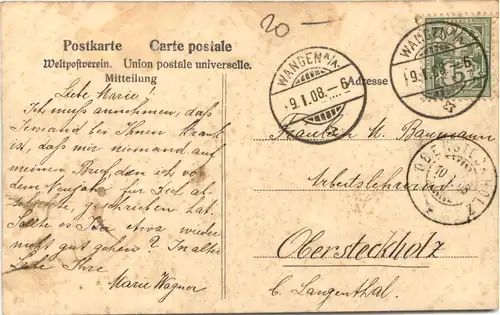 20 —
Postkarte   Carte postale
Weltpostverein. Union postale universelle.
Mitteilung
Adresse
WANGEN A/A.
-9.I.08.-6
WANGEN A/A.
-9.I.08.-6
5
OBERSTECKHOLZ
10 I 08
Liebe Marie!
Ich muß annehmen, daß
Jemand bei Ihnen krank
ist, daß mir niemand auf
meinen Brief, den ich vor
dem Neujahr für Sie
geschrieben hat.
Sollte es Ihr etwa wieder
nicht gut gehen? In alter
Liebe Ihre
Marie Wagner
Fräulein M. Baumann
Arbeitslehrerin
Obersteckholz
b. Langenthal.